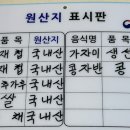 원산지 표시판
품목 원산지 음식명 품
재첩 국내산 가자미 생선
재첩 국내산 콩자반 콩
추가우 국내산
쌀 국내산
채 국내산